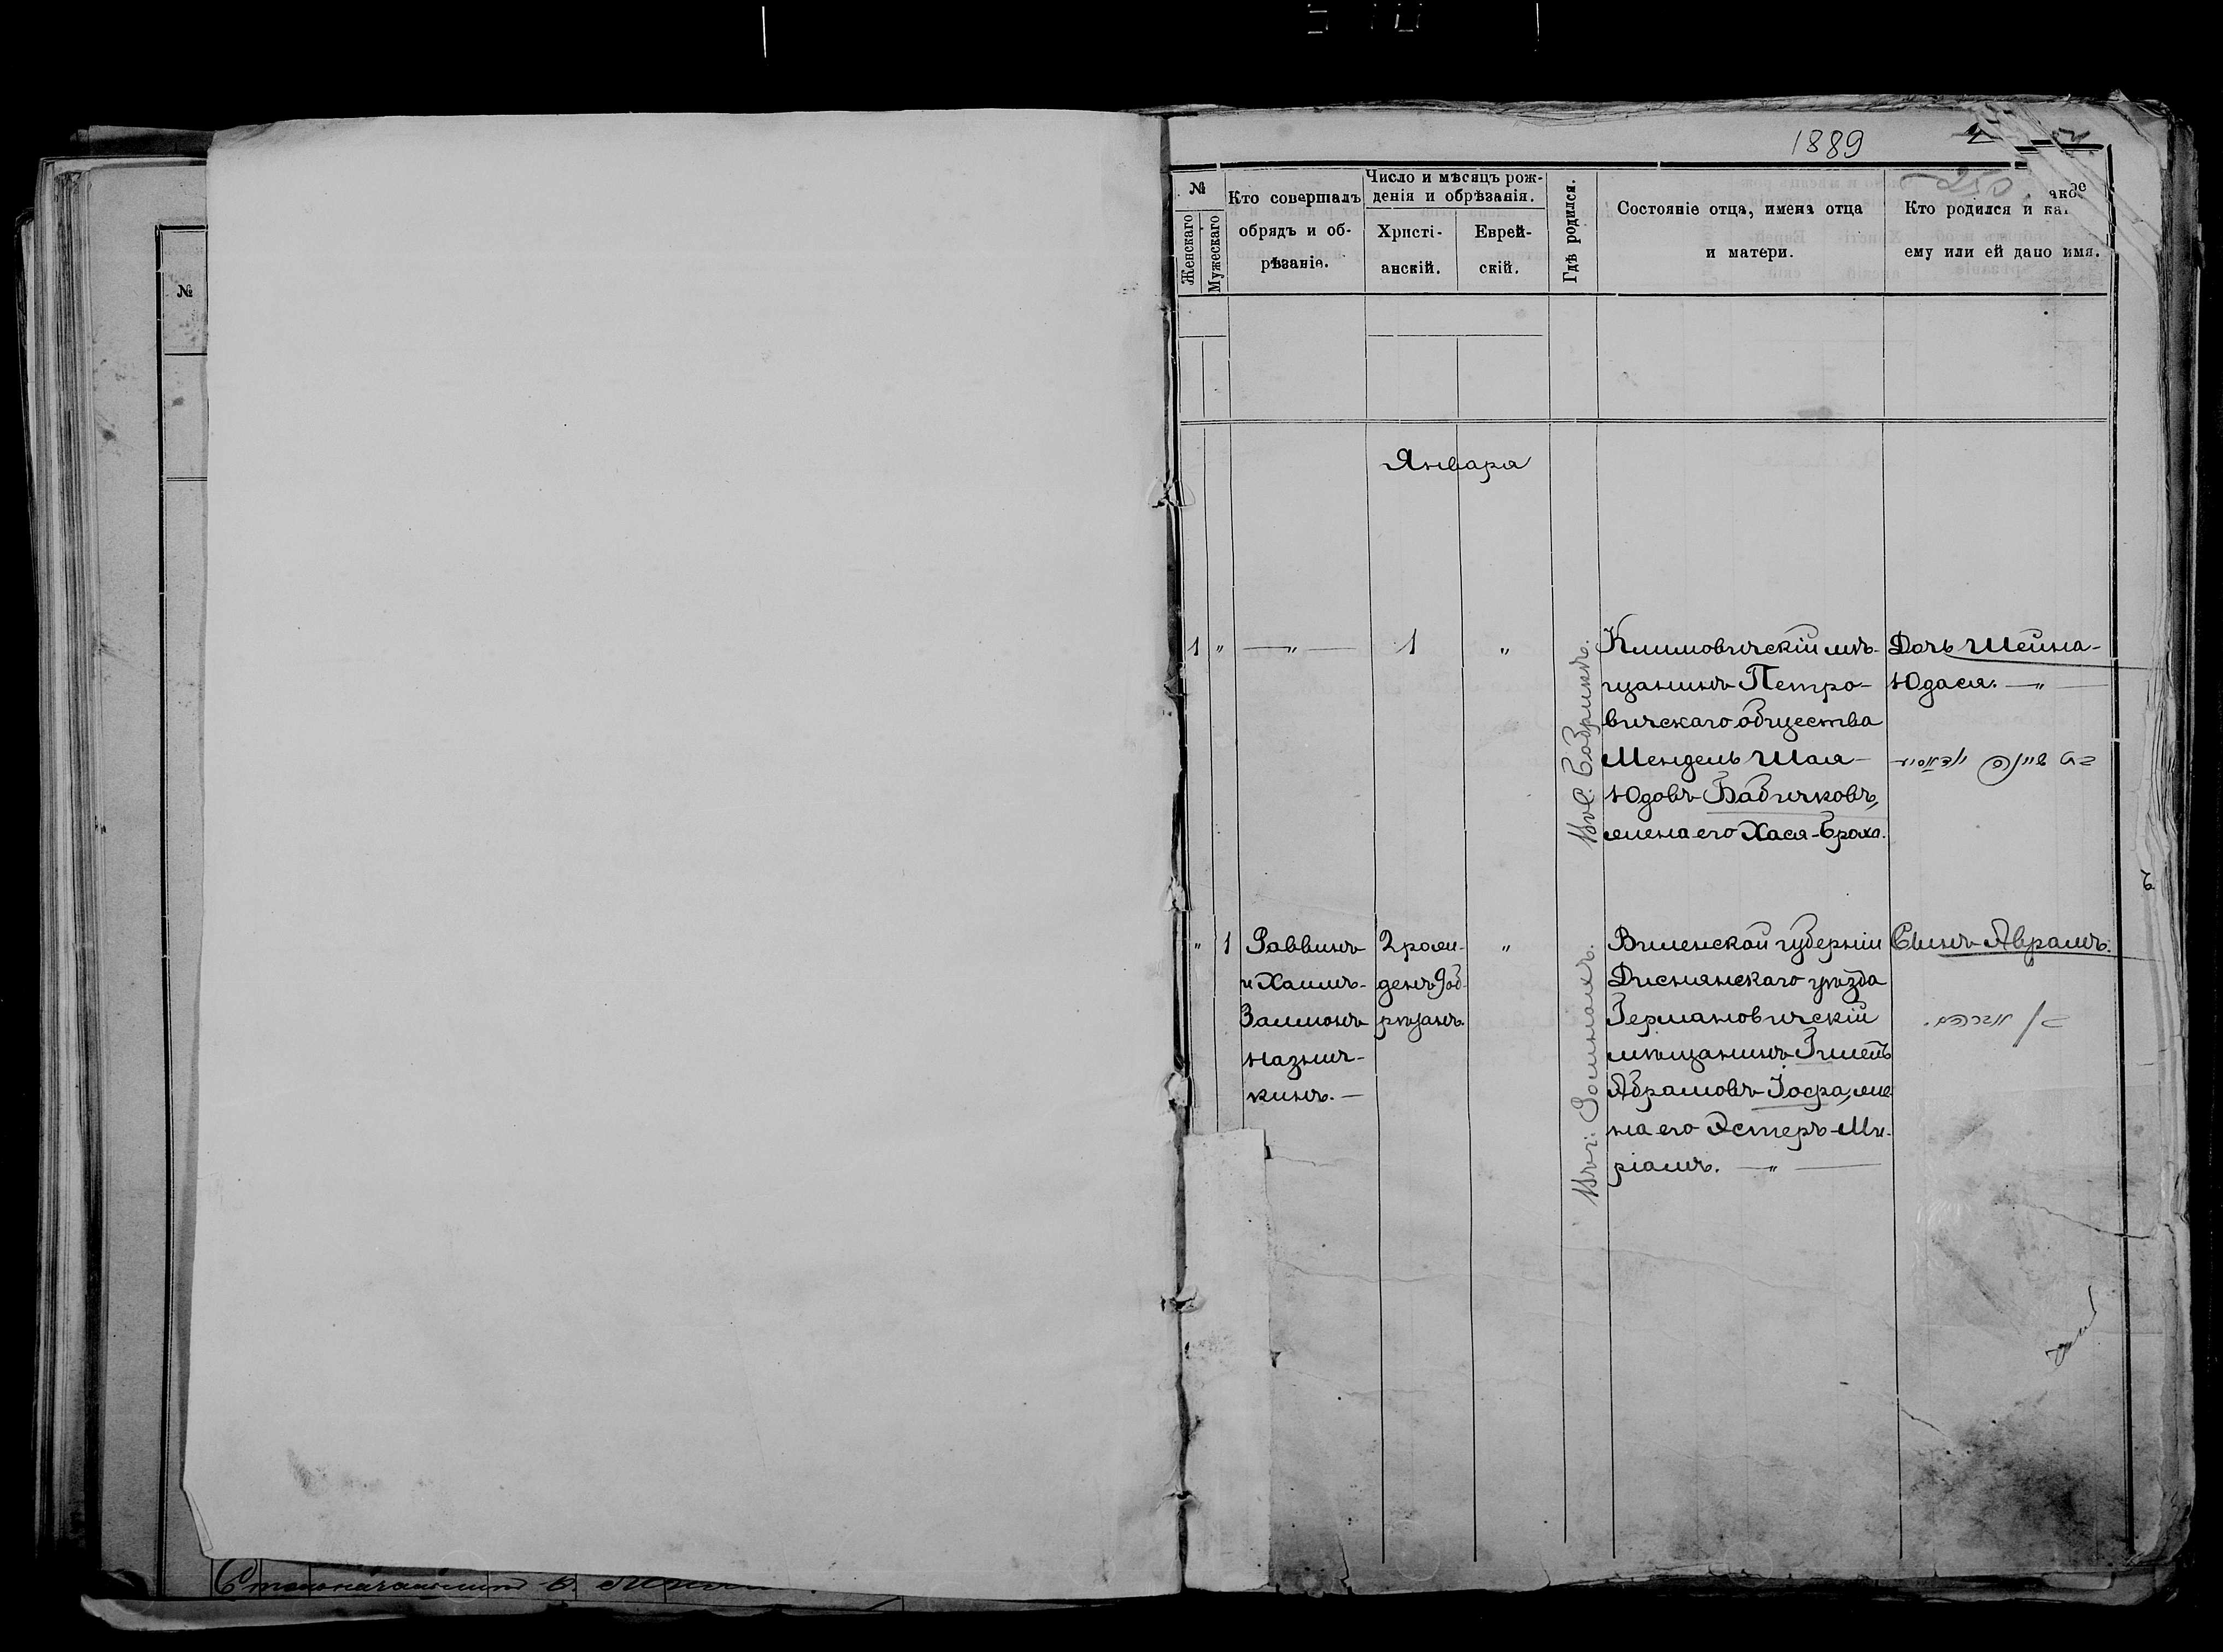 1889
№
Женскаго
Мужескаго
Кто совершалъ
обрядъ и об-
рѣзаніе.
Число и мѣсяцъ рож-
денія и обрѣзанія.
Христі-
анскій.
Еврей-
скій.
Гдѣ родился.
Состояніе отца, имена отца
и матери.
Кто родился и какое
ему или ей дано имя.
№
Января
1 " — " — 1 "
Климовичскій мѣ-
щанинъ Петро-
вичскаго общества
Мендель Шая-
Юдовъ Бабичковъ,
жена его Хася-Браха.
Дочь Шейна-
Юдася. — " —
" 1
Раввинъ
и Хаимъ-
Залмонъ
2 рож-
денъ 9 об-
рѣзанъ.
"
Виленской губерніи
Диснянскаго уѣзда
Германовичскій
мѣщанинъ
Абрамовъ Іофа, же
на его Эстеръ-Ми-
ріамъ. — " —
Сынъ Аврамъ.